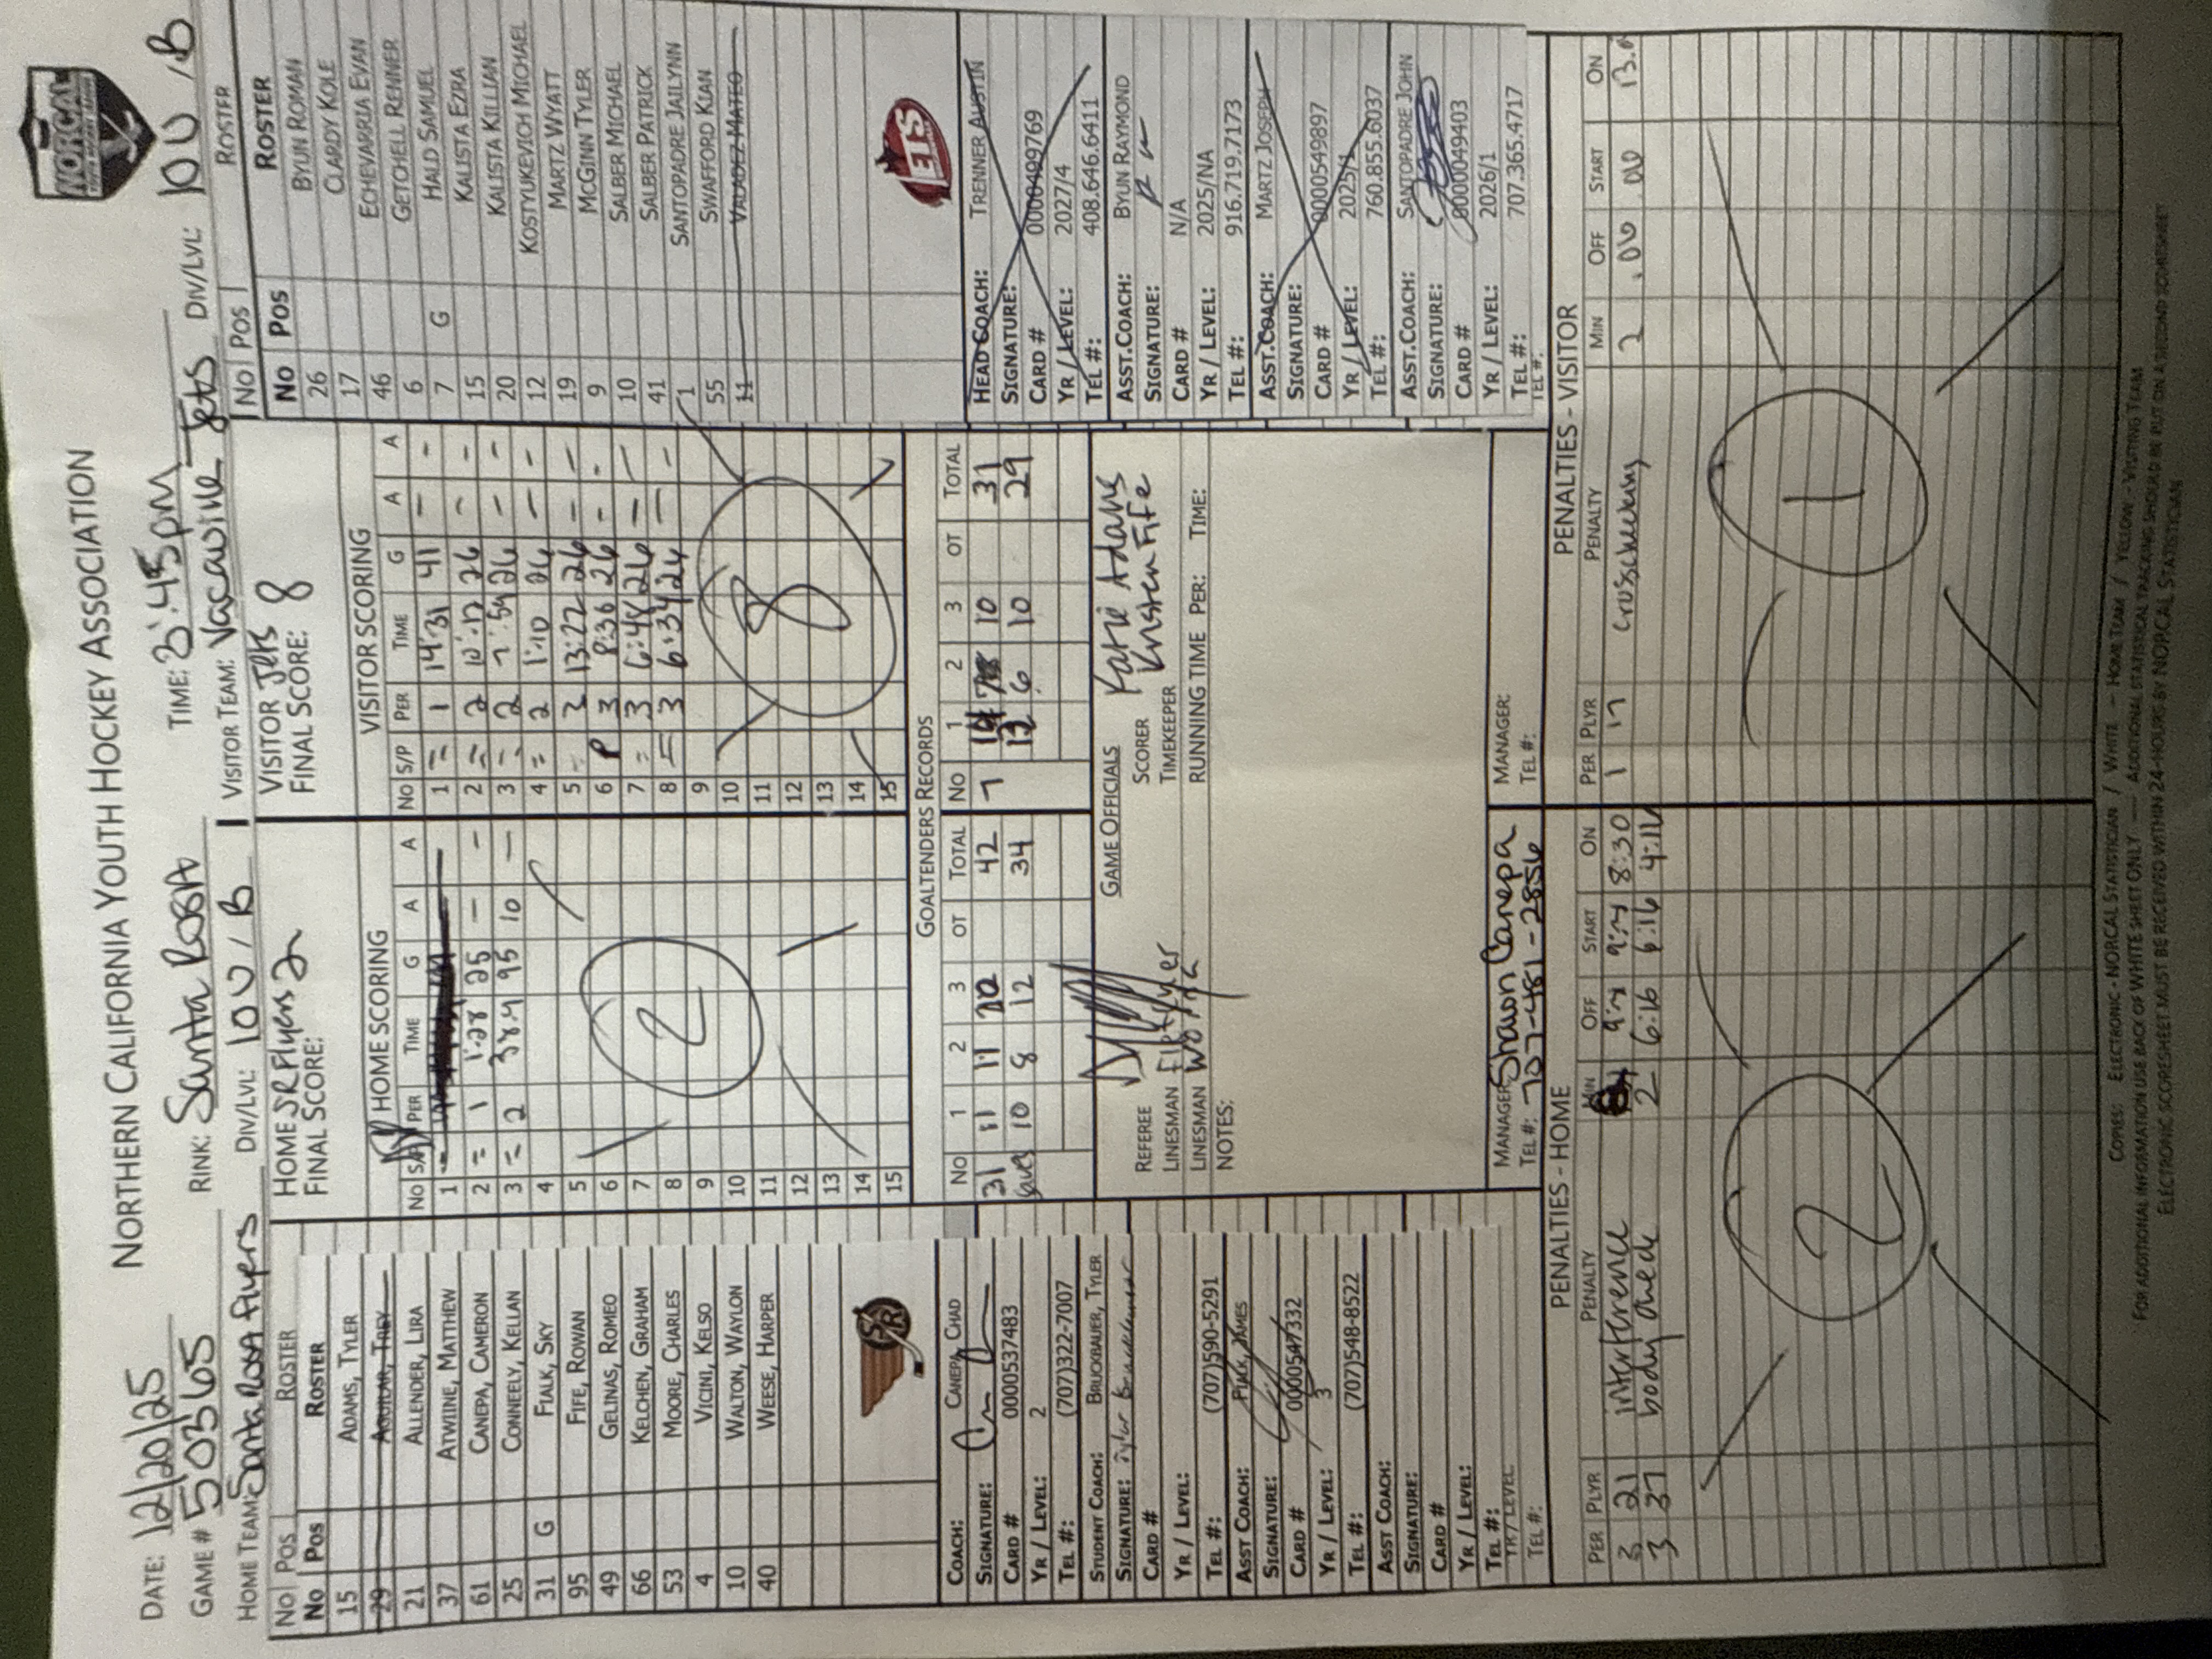 NORCAL
NORTHERN CALIFORNIA YOUTH HOCKEY ASSOCIATION
DATE: 12/20/25
GAME # 50365 RINK: Santa Rosa TIME: 3:45pm DIV/LVL: 10U / B
HOME TEAM: Santa Rosa Flyers DIV/LVL: 10U / B VISITOR TEAM: Vacaville Jets
NO POS ROSTER
No Pos ROSTER
15 ADAMS, TYLER
29 AGUILAR, TREY
21 ALLENDER, LIRA
37 ATWIINE, MATTHEW
61 CANEPA, CAMERON
25 CONNEELY, KELLAN
31 G FIALK, SKY
95 FIFE, ROWAN
49 GELINAS, ROMEO
66 KELCHEN, GRAHAM
53 MOORE, CHARLES
4 VICINI, KELSO
10 WALTON, WAYLON
40 WEESE, HARPER
SR
COACH: CANEPA, CHAD
SIGNATURE:
CARD # 0000537483
YR / LEVEL: 2
TEL #: (707)322-7007
STUDENT COACH: BRUCKBAUER, TYLER
SIGNATURE: Tyler Bruckbauer
CARD #
YR / LEVEL:
TEL #: (707)590-5291
ASST COACH: FIALK, JAMES
SIGNATURE:
CARD # 0000547332
YR / LEVEL: 3
TEL #: (707)548-8522
ASST COACH:
SIGNATURE:
CARD #
YR / LEVEL:
TEL #:
YR / LEVEL:
TEL #:
HOME SR Flyers
FINAL SCORE: 2
HOME SCORING
NO S/P PER TIME G A A
1
2 = 1 1:28 25 – –
3 = 2 38.4 95 10 –
4
5
6
7
8
9
10
11
12
13
14
15
2
VISITOR Jets
FINAL SCORE: 8
VISITOR SCORING
NO S/P PER TIME G A A
1 = 1 14:31 41 – –
2 = 2 10:17 26 – –
3 = 2 7:59 26 – –
4 = 2 1:10 26 – –
5 = 3 13:22 26 – –
6 P 3 8:36 26 – –
7 = 3 6:48 26 – –
8 = 3 6:34 26 – –
9
10
11
12
13
14
15
8
GOALTENDERS RECORDS
NO 1 2 3 OT TOTAL NO 1 2 3 OT TOTAL
31 11 11 20 42 7 10 31
saves 10 8 12 34 12 6 10 29
GAME OFFICIALS
REFEREE SCORER Katie Adams
LINESMAN TIMEKEEPER Kristen Fife
LINESMAN RUNNING TIME PER: TIME:
NOTES:
MANAGER: Shawn Canepa
TEL #: 707-481-2856
MANAGER:
TEL #:
ROSTER
NO POS
No Pos ROSTER
26 BYUN ROMAN
17 CLARDY KOLE
46 ECHEVARRIA EVAN
6 GETCHELL RENNER
7 G HALD SAMUEL
15 KALISTA EZRA
20 KALISTA KILLIAN
12 KOSTYUKEVICH MICHAEL
19 MARTZ WYATT
9 MCGINN TYLER
10 SALBER MICHAEL
41 SALBER PATRICK
1 SANTOPADRE JAILYNN
55 SWAFFORD KIAN
11 VALADEZ MATEO
JETS
HEAD COACH: TRENNER AUSTIN
SIGNATURE:
CARD # 0000499769
YR / LEVEL: 2027/4
TEL #: 408.646.6411
ASST.COACH: BYUN RAYMOND
SIGNATURE:
CARD # N/A
YR / LEVEL: 2025/NA
TEL #: 916.719.7173
ASST.COACH: MARTZ JOSEPH
SIGNATURE:
CARD # 0000549897
YR / LEVEL: 2025/1
TEL #: 760.855.6037
ASST.COACH: SANTOPADRE JOHN
SIGNATURE:
CARD # 0000049403
YR / LEVEL: 2026/1
TEL #: 707.365.4717
TEL #:
PENALTIES - HOME
PER PLYR PENALTY MIN OFF START ON
3 21 interference 8:30
3 37 body check 2 6:16 6:16 4:16
2
PENALTIES - VISITOR
PER PLYR PENALTY MIN OFF START ON
1 17 crosschecking 2 .00 .00
1
COPIES: ELECTRONIC - NORCAL STATISTICIAN / WHITE - HOME TEAM / YELLOW - VISITING TEAM
FOR ADDITIONAL INFORMATION USE BACK OF WHITE SHEET ONLY — ADDITIONAL STATISTICAL TRACKING SHOULD BE PUT ON A SECOND SCORESHEET
ELECTRONIC SCORESHEET MUST BE RECEIVED WITHIN 24-HOURS BY NORCAL STATISTICIAN